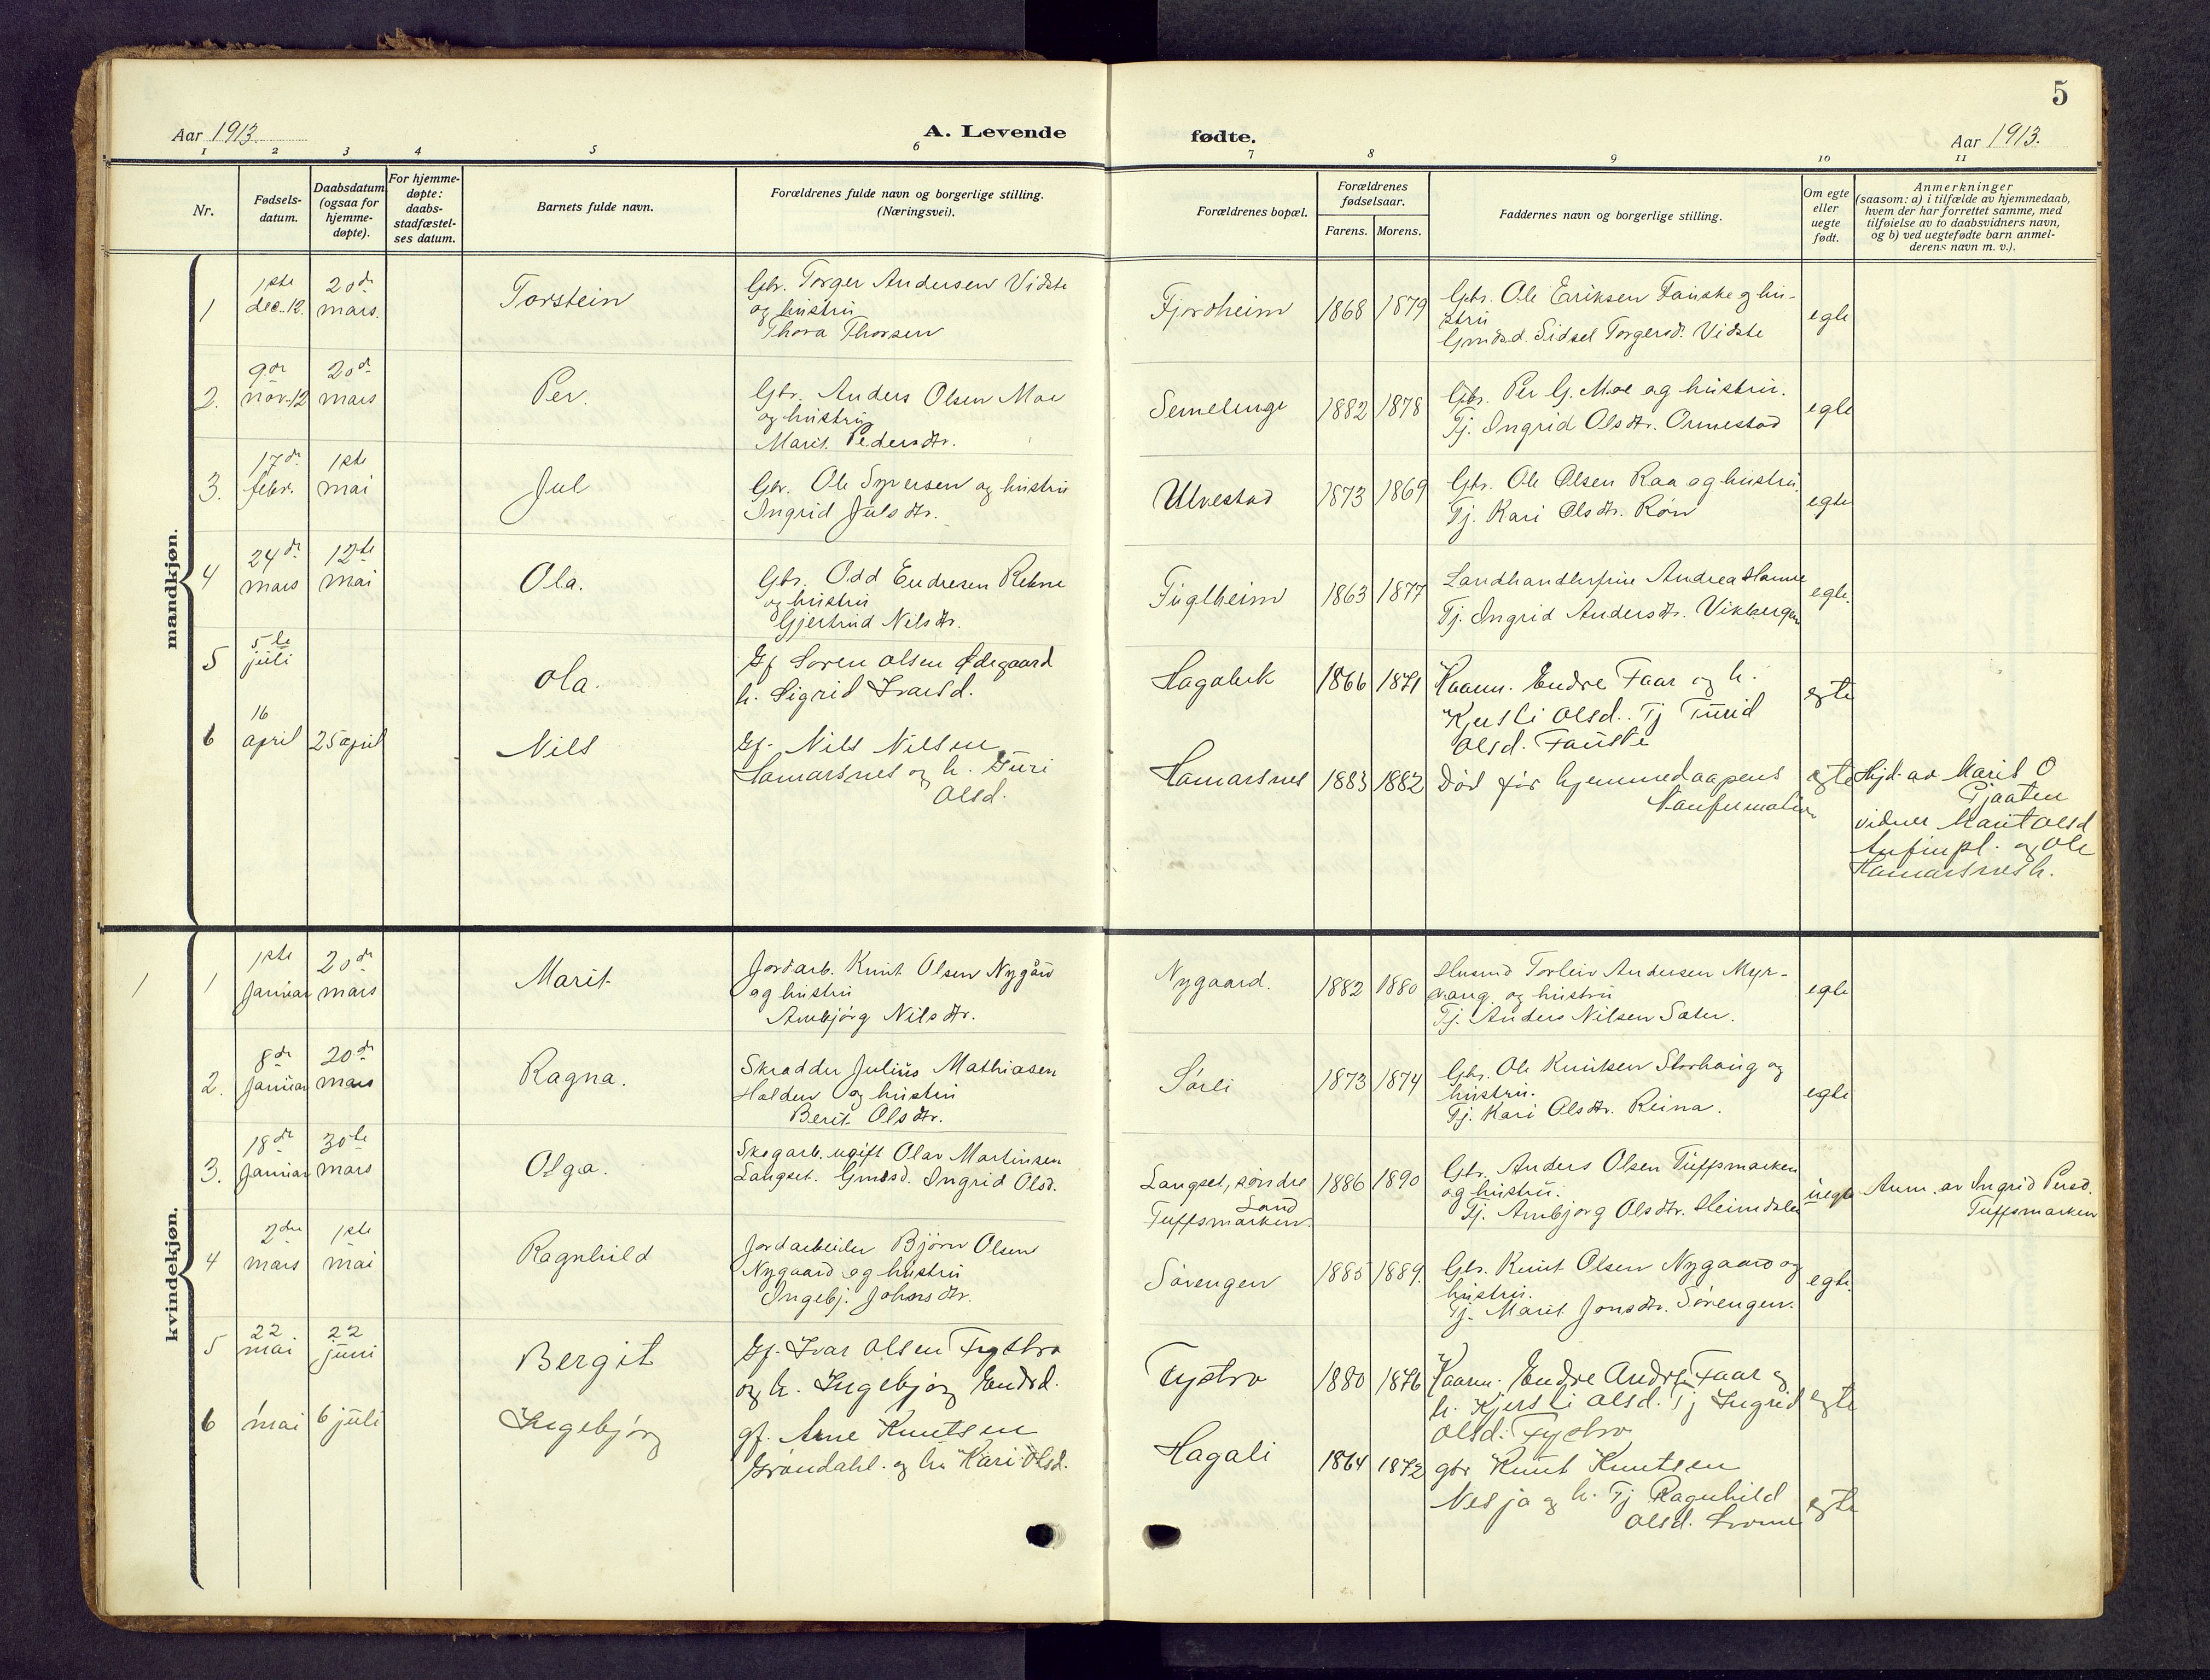 5
Aar 1913.
A. Levende
fødte.
Aar 1913.
1 2 3 4 5 6 7 8 9 10 11
Nr.
Fødsels-
datum.
Daabsdatum
(ogsaa for
hjemme-
døpte).
For hjemme-
døpte:
daabs-
stadfæstel-
ses datum.
Barnets fulde navn.
Forældrenes fulde navn og borgerlige stilling.
(Næringsvei).
Forældrenes bopæl.
Forældrenes
fødselsaar.
Farens. Morens.
Faddernes navn og borgerlige stilling.
Om egte
eller
uegte
født.
Anmerkninger
(saasom: a) i tilfælde av hjemmedaab,
hvem der har forrettet samme, med
tilføielse av to daabsvidners navn,
og b) ved uegtefødte barn anmel-
derens navn m. v.).
mandkjøn.
1
1ste
dec. 12.
20de
mars.
Torstein
Gbr. Torger Andersen Vidste
og hustru
Thora Thorsen
Fjordheim
1868 1879
Gbr. Ole Eriksen Fauske og hu-
stru
Gmdsd. Sidsel Torgersd. Vidste
egte
2.
9de
nov. 12
20de
mars
Per.
Gbr. Anders Olsen Moe
og hustru
Marit Pedersdtr.
Semelenge
1882 1878
Gbr. Per G. Moe og hustru.
Tj. Ingrid Olsdtr. Ormestad
egte
3.
17de
febr.
1ste
mai
Jul
Gbr. Ole Syversen og hustru
Ingrid Julsdtr.
Ulvestad
1873 1869
Gbr. Ole Olsen Raa og hustru.
Tj. Kari Olsdtr. Røn
egte
4
24de
mars
12te
mai
Ola.
Gbr. Odd Endresen Rebne
og hustru
Gjertrud Nilsdtr.
Fuglheim
1863 1877
Landhandlerfrue Andrea Hamre
Tj. Ingrid Andersdtr. Vikbergen
egte.
5
5te
juli
Ola.
Gf Soren Olsen Ødegaard
h. Sigrid Ivarsd.
Hagabek
1866 1871
Kaarm. Endre Faar og h.
Kjersti Olsd. Tj Turid
Olsd. Fauske
egte
6
16
april
25 april
Nils
Gf. Nils Nilsen
Hamarsnes og h. Guri
Olsd.
Hamarsnes
1883 1882
Død før hjemmedaapens
konfirmation
egte
Hjd. av Marit O
Gjaaten
vidner Marit Olsd
og Ole
Hamarsnes h.
kvindekjøn.
1
1
1ste
Januar
20de
mars
Marit
Jordarb. Knut Olsen Nygård
og hustru
Ambjørg Nilsdtr.
Nygaard.
1882 1880
Husmd Torlein Andersen Myr-
vang og hustru
Tj. Anders Nilsen Sæter.
egte
2.
8de
Januar
20de
mars
Ragna.
Skradder Julius Mathiasen
Halden og hustru
Berit Olsdtr.
Sørli
1873 1874
Gbr. Ole Knutsen Storhaug og
hustru.
Tj. Kari Olsdtr. Reina.
egte
3.
18de
Januar
30te
mars
Olga.
Skogarb. ugift Olav Martinsen
Langset. Gmdsd. Ingrid Olsd.
Langset, søndre
Land
Tuffsmarken.
1886 1890
Gbr. Anders Olsen Tuffsmarken
og hustru.
Tj. Ambjørg Olsdtr. Heimdalen
uegte
Anm. av Ingrid Persd.
Tuffsmarken
4
2den
mars
1ste
mai
Ragnhild
Jordarbeider Bjørn Olsen
Nygaard og hustru
Ingebj. Johnsdtr.
Sørengen
1885 1889.
Gbr. Knut Olsen Nygaard og
hustru.
Tj. Marit Jonsdtr. Sørengen.
egte.
5
22
mai
22
juni
Bergit
Gf. Ivar Olsen Fystro
og h. Ingebjørg Endrd.
Fystro
1880 1876
Kaarm. Endre Andr. Faar og
h. Kjersti Olsd. Tj Ingrid
Olsd. Fystro
egte
6
mai
6 juli
Ingebjørg
gf. Arne Knutsen
Grøndahl og hu Kari Olsd.
Hagali
1864 1872
gbr Knut Knutsen
Nesja og h. Tj Ragnhild
Olsd.
egte